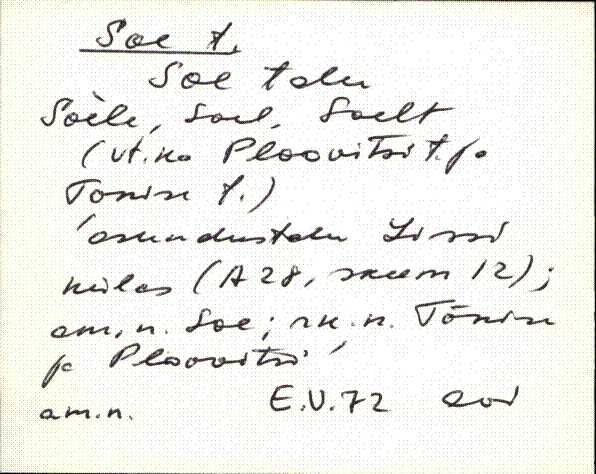 Soe t.
Soe talu
Soèle, Soel, Soelt
(vt. ka Ploovitsi t. ja
Tõnise t.)
'asundustalu Lissi
külas (A 28, skeem 12);
am. n. Soe; rk. n. Tõnise
ja Ploovitsi'
am.n. E.V.72